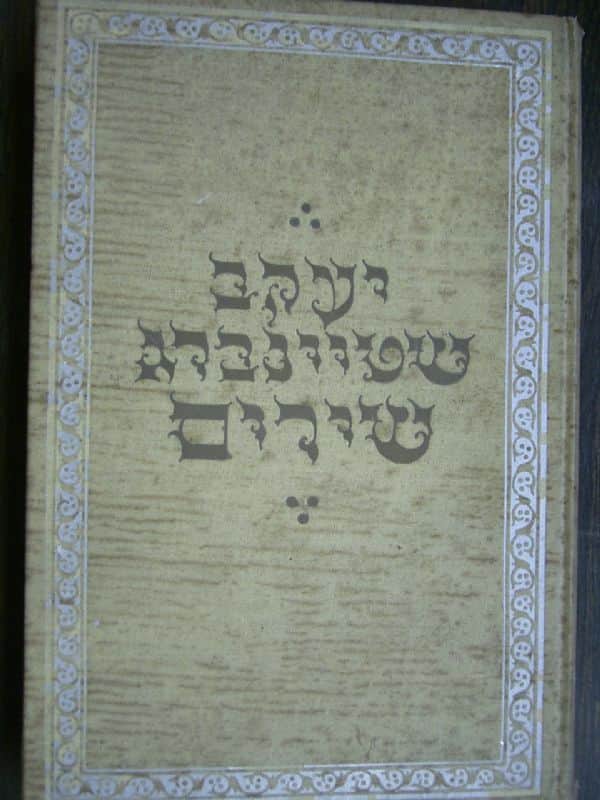 יעקב
שטיינברג
שירים